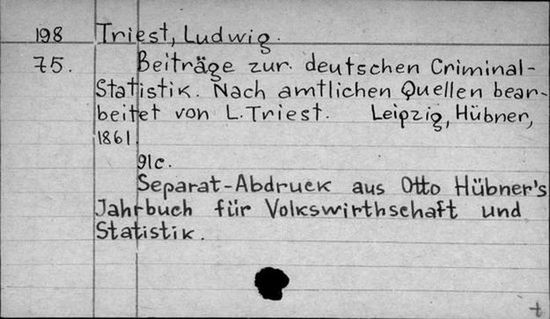 198 Triest, Ludwig.
75. Beiträge zur deutschen Criminal-
Statistik. Nach amtlichen Quellen bear-
beitet von L. Triest. Leipzig, Hübner,
1861.
91c.
Separat-Abdruck aus Otto Hübner's
Jahrbuch für Volkswirthschaft und
Statistik.
t